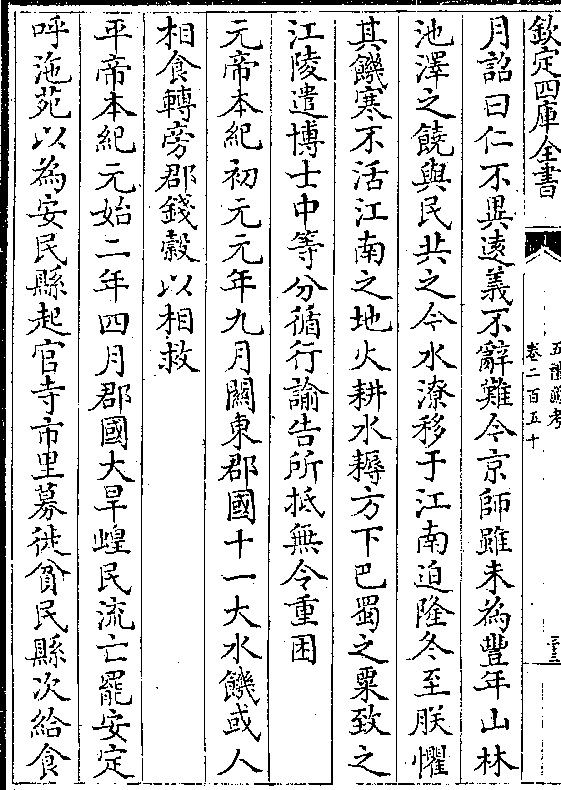 欽定四庫全書
五禮通考
卷二百五十
月詔曰仁不異逺義不辭難今京師雖未為豐年山林
池澤之饒與民共之今水潦移于江南迫隆冬至朕懼
其饑寒不活江南之地火耕水耨方下巴蜀之粟致之
江陵遣博士中等分循行諭告所抵無令重困
元帝本紀初元元年九月關東郡國十一大水饑或人
相食轉旁郡錢糓以相救
平帝本紀元始二年四月郡國大旱蝗民流亡罷安定
呼沲苑以為安民縣起官寺市里募徙貧民縣次給食